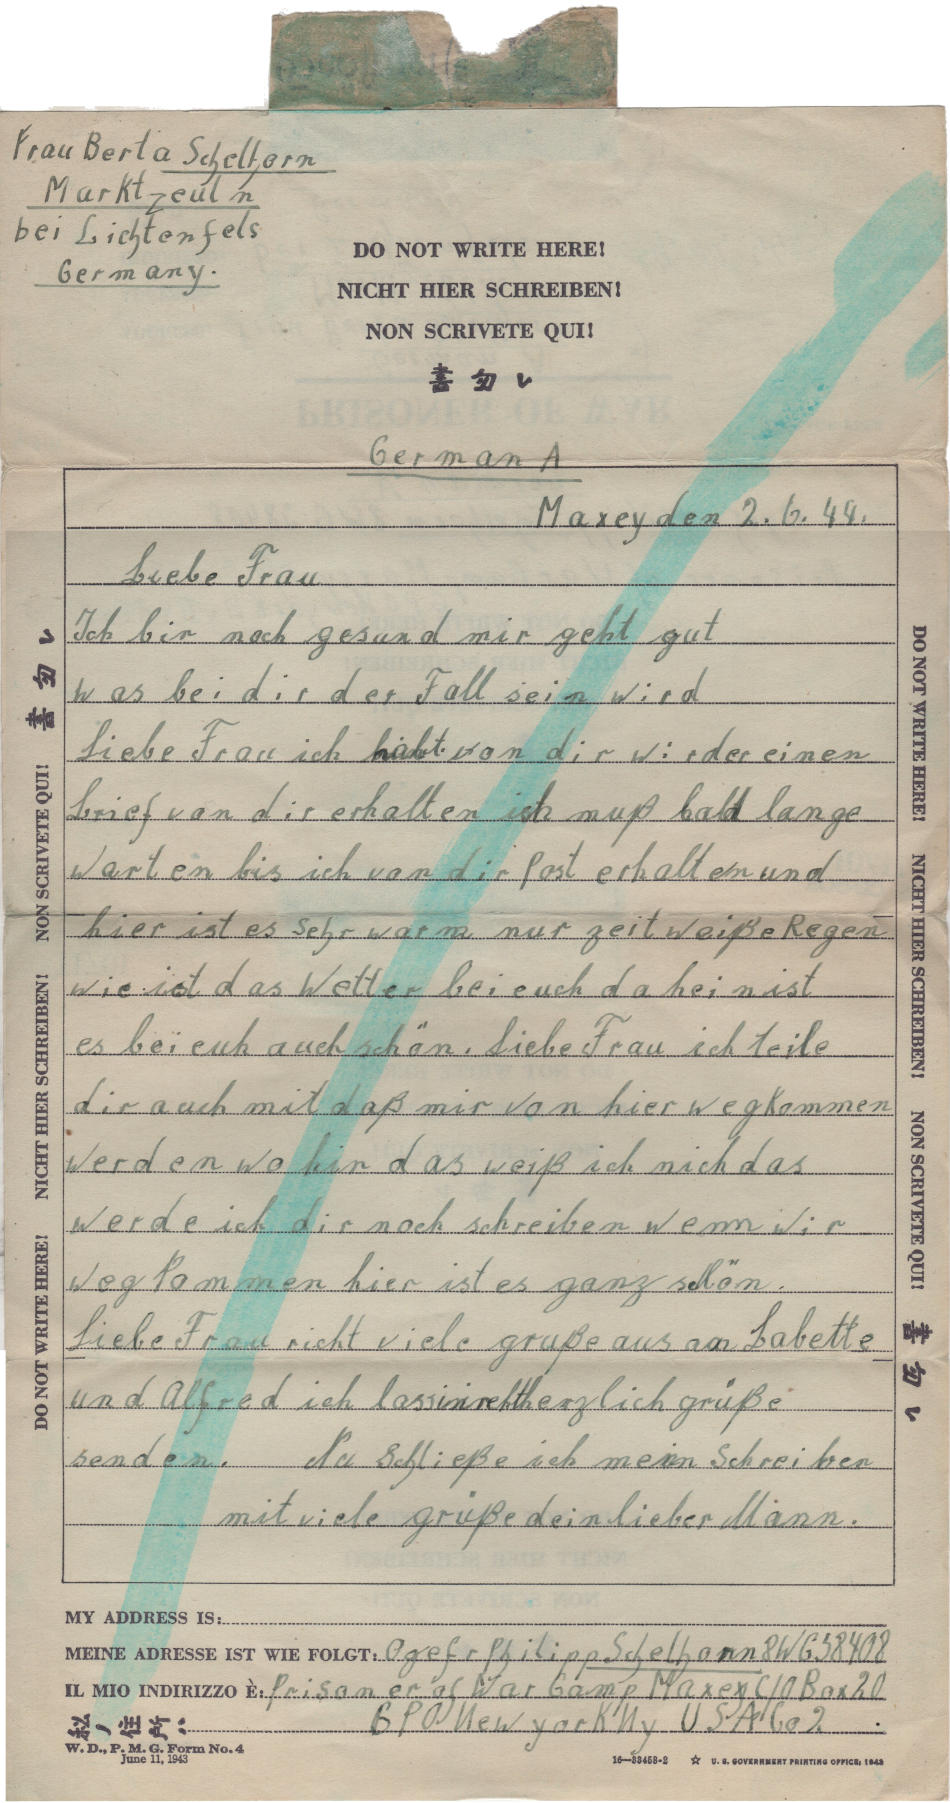 Frau Berta Schelhorn
Marktzeuln
bei Lichtenfels
Germany.
DO NOT WRITE HERE!
NICHT HIER SCHREIBEN!
NON SCRIVETE QUI!
書勿レ
German A
Maxey den 2.6.44.
Liebe Frau
Ich bir noch gesund mir geht gut
was bei dir der Fall sein wird
Liebe Frau ich habt von dir wirder einen
brief von dir erhalten ich muß bald lange
warten bis ich von dir Post erhalten und
hier ist es sehr warm nur zeit weiße Regen
wie ist das Wetter bei euch dahein ist
es bei euh auch schön. Liebe Frau ich teile
dir auch mit daß mir von hier wegkommen
werden wo hin das weiß ich nich das
werde ich dir noch schreiben wenn wir
weg kommen hier ist es ganz schön.
Liebe Frau richt viele gruße aus an Babette
und Alfred ich herzlich grüße
senden. Nu Schließe ich mein Schreiben
mit viele grüße dein lieber Mann.
書勿レ
NON SCRIVETE QUI!
NICHT HIER SCHREIBEN!
DO NOT WRITE HERE!
DO NOT WRITE HERE!
NICHT HIER SCHREIBEN!
NON SCRIVETE QUI!
書勿レ
MY ADDRESS IS:
MEINE ADRESSE IST WIE FOLGT: Ogefr Philipp Schelhorn 8WG58408
IL MIO INDIRIZZO È: Prisoner of War Camp Maxey C/O Box 20
私ノ住所ハ GPO New york Ny USA Co 2 .
W. D., P. M. G. Form No. 4
June 11, 1943
16—33458-2 ☆ U. S. GOVERNMENT PRINTING OFFICE: 1943
PRISONER OF WAR